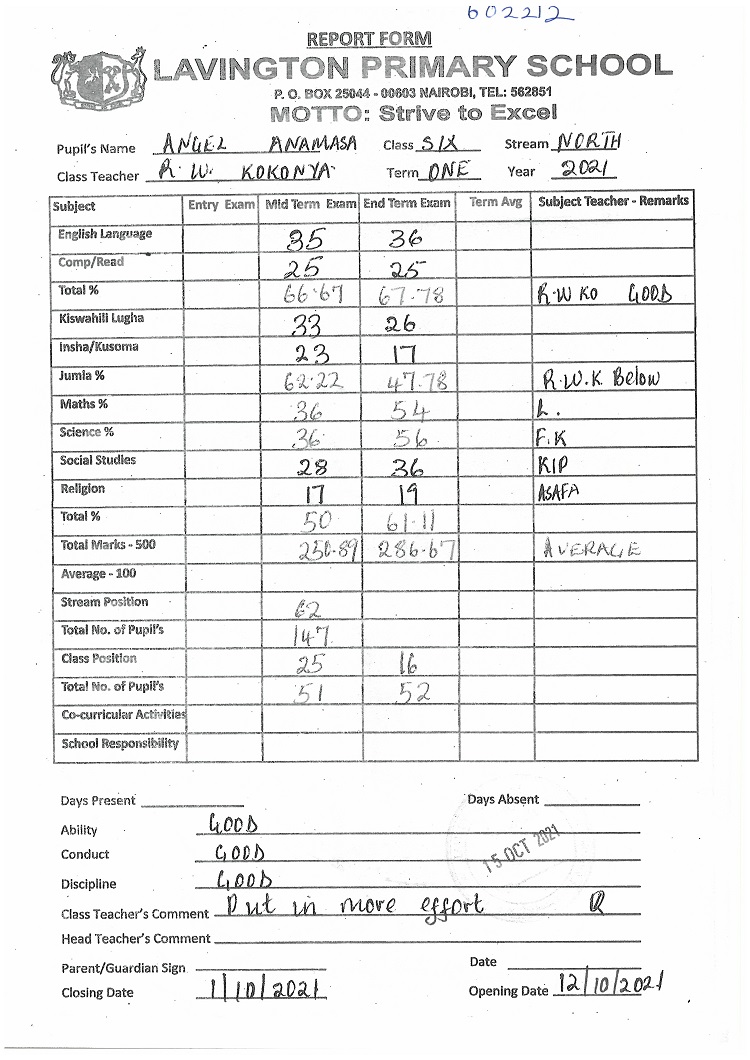 602212
REPORT FORM
LAVINGTON PRIMARY SCHOOL
P. O. BOX 25044 - 00603 NAIROBI, TEL: 562851
MOTTO: Strive to Excel
Pupil's Name ANGEL ANAMASA Class SIX Stream NORTH
Class Teacher R. W. KOKONYA Term ONE Year 2021
Subject Entry Exam Mid Term Exam End Term Exam Term Avg Subject Teacher - Remarks
English Language 35 36
Comp/Read 25 25
Total % 66.67 67.78 R.W KO GOOD
Kiswahili Lugha 33 26
Insha/Kusoma 23 17
Jumla % 62.22 47.78 R.W.K. Below
Maths % 36 54 L.
Science % 36 56 F.K
Social Studies 28 36 KIP
Religion 17 19 ASAFA
Total % 50 61.11
Total Marks - 500 286.67 AVERAGE
Average - 100
Stream Position 62
Total No. of Pupil's 147
Class Position 25 16
Total No. of Pupil's 51 52
Co-curricular Activities
School Responsibility
Days Present Days Absent
Ability GOOD
Conduct GOOD
15 OCT 2021
Discipline GOOD
Class Teacher's Comment Put in more effort
Head Teacher's Comment
Parent/Guardian Sign Date
Closing Date 1/10/2021 Opening Date 12/10/2021